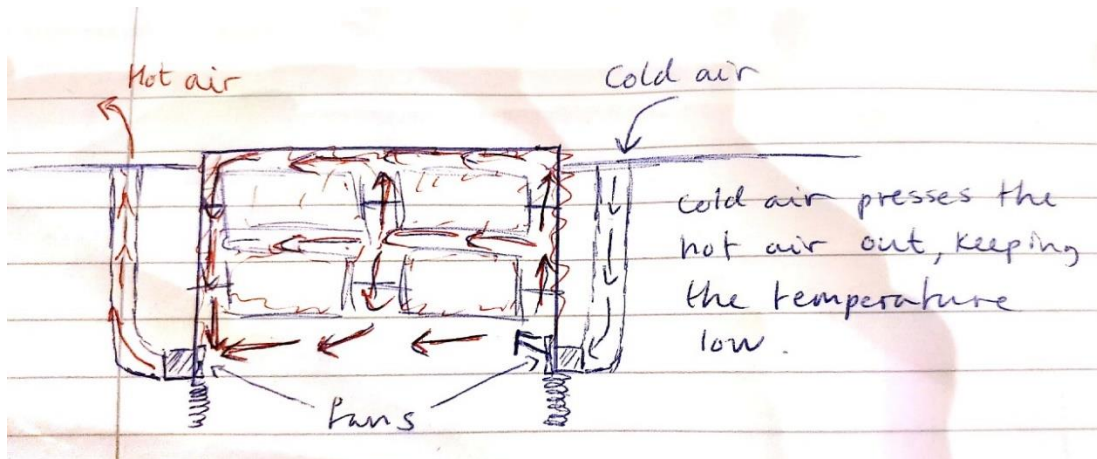 Hot air
Cold air
cold air presses the
hot air out, keeping
the temperature
low.
Fans